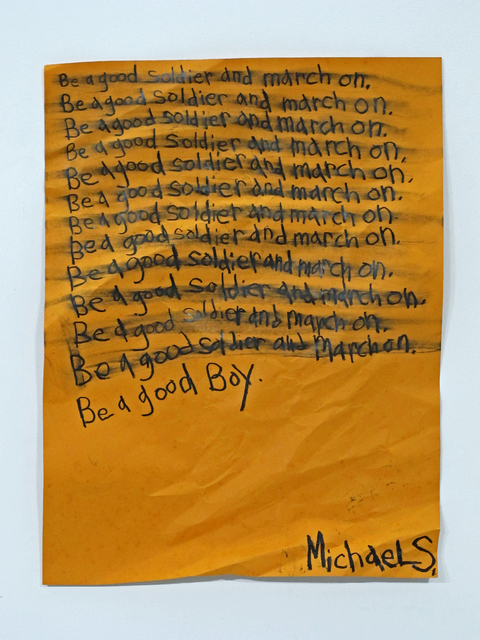 Be a good soldier and march on.
Be a good soldier and march on.
Be a good soldier and march on.
Be a good soldier and march on,
Be a good soldier and march on,
Be a good soldier and march on.
Be a good soldier and march on.
Be a good soldier and march on.
Be a good soldier and march on.
Be a good Soldier and march on.
Be a good soldier and march on.
Be a good soldier and March on.
Be a good Boy.
Michael S.